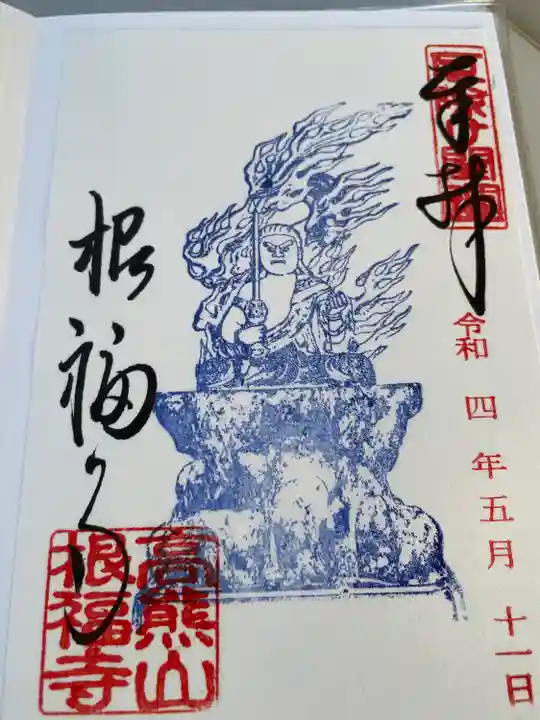 奉拝
令和四年五月十一日
根福寺
高熊山
根福寺